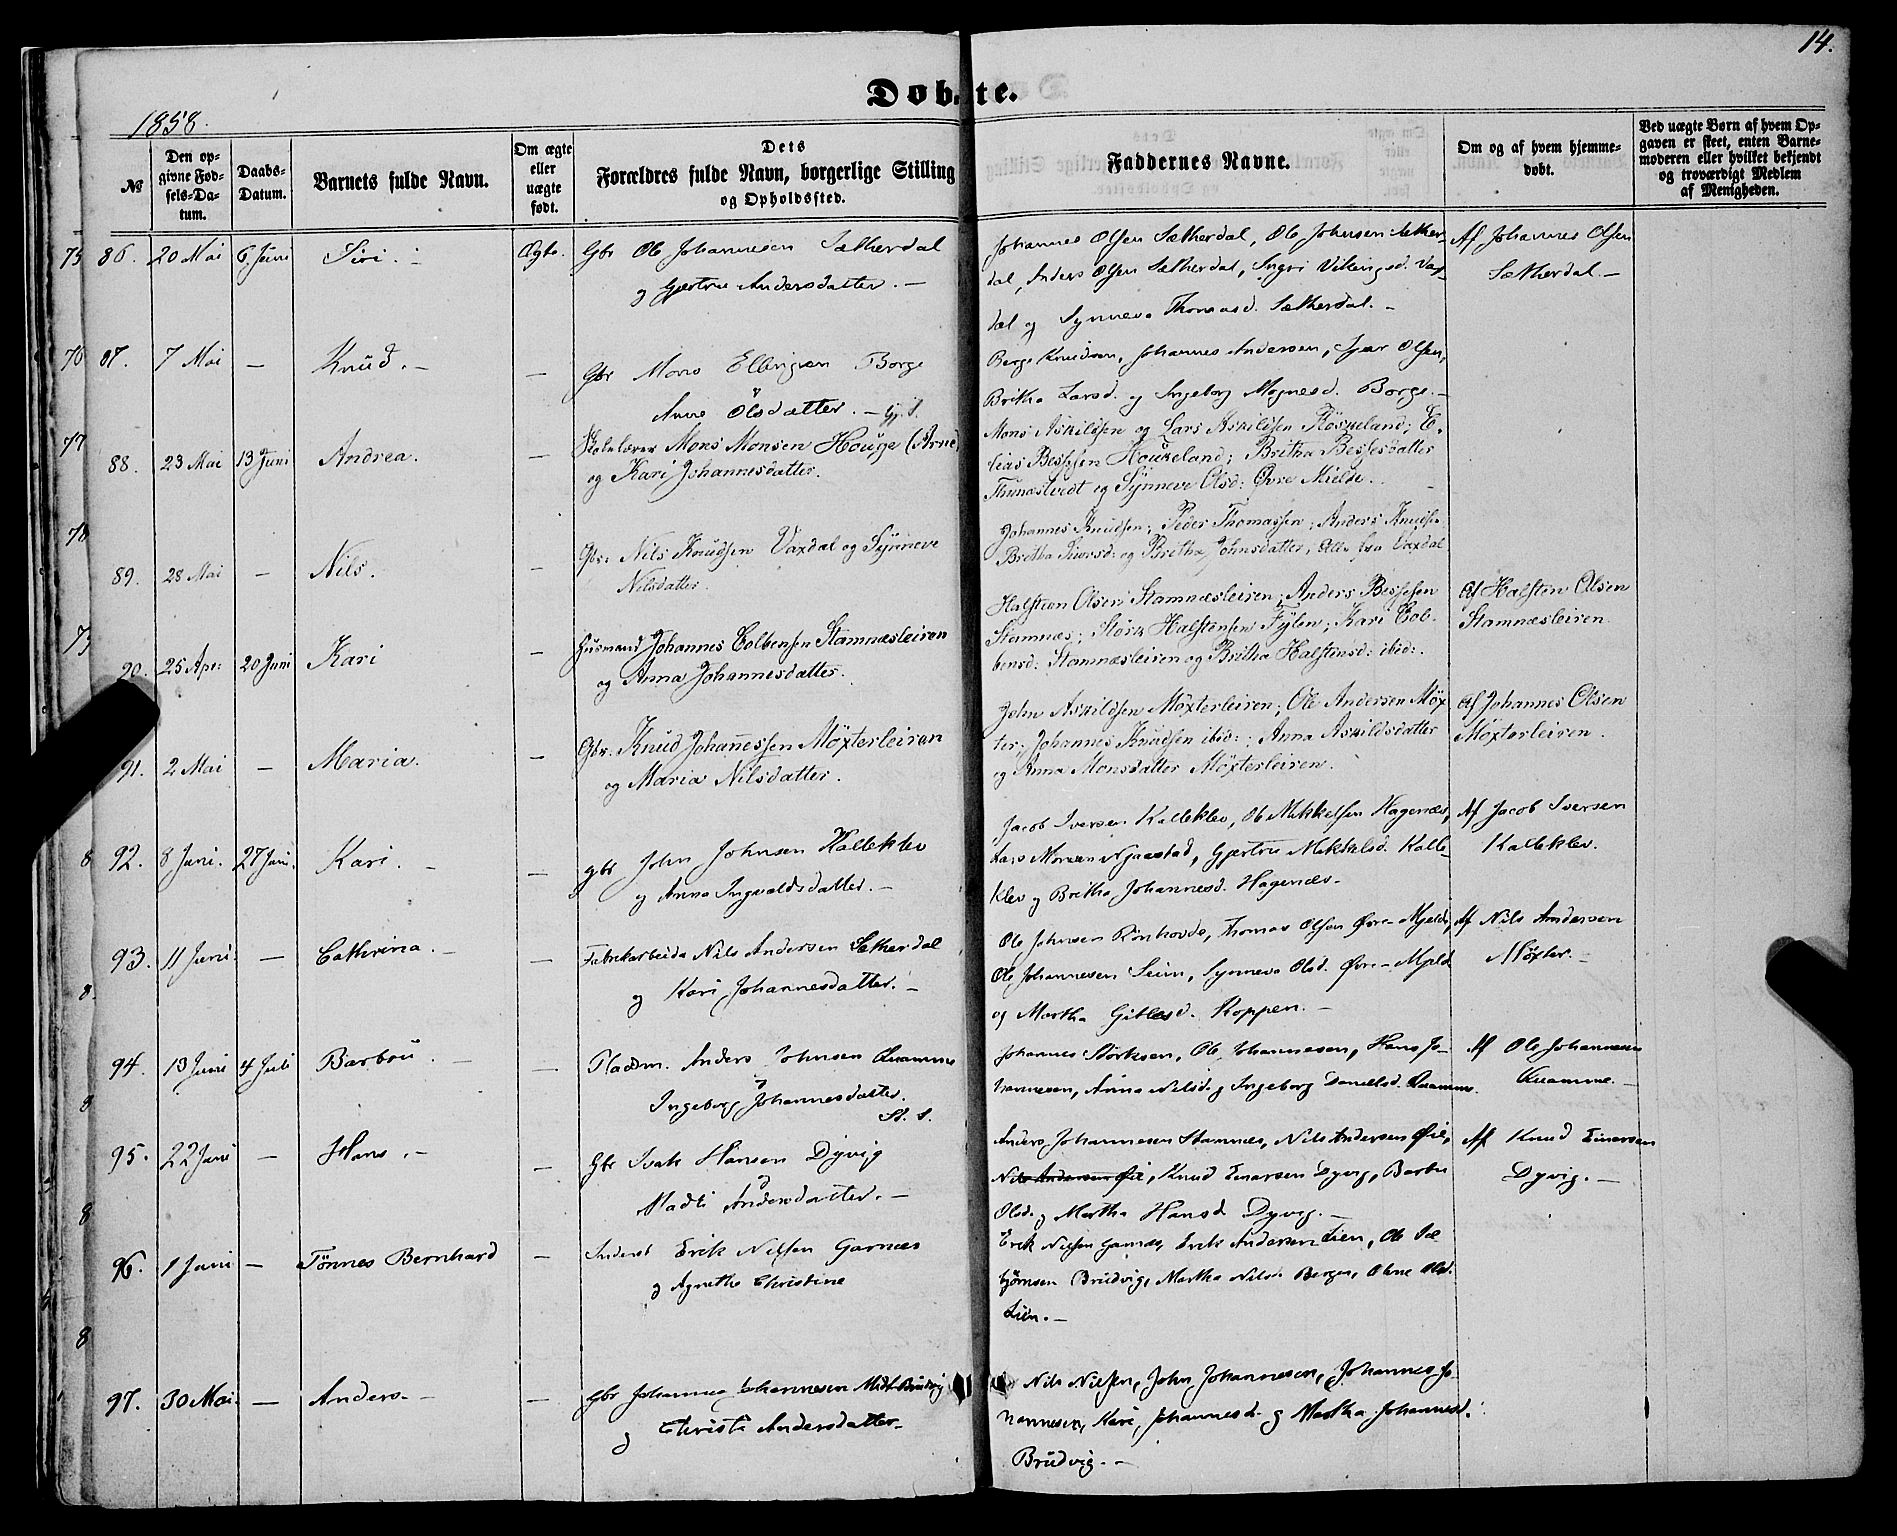 14.
Døbte.
1858.
No
Den opgivne Fødsels-Datum.
Daabs-Datum.
Barnets fulde Navn.
Om ægte eller uægte født.
Dets Forældres fulde Navn, borgerlige Stilling og Opholdssted.
Faddernes Navne.
Om og af hvem hjemmedøbt.
Ved uægte Børn af hvem Opgaven er skeet, enten Barnemoderen eller hvilket bekjendt og troværdigt Medlem af Menigheden.
75 86. 20 Mai 6 Juni Siri. – Ægte. Gbr Ole Johannesen Sætherdal
og Gjertru Andersdatter. –
Johannes Olsen Sætherdal, Ole Johnsen Sæther-
dal, Anders Olsen Sætherdal, Ingri Vikingsd. Vax-
dal og Synneva Thomasd. Sætherdal. –
Af Johannes Olsen
Sætherdal. –
76 87. 7 Mai – Knud. – – Gbr Mons Ellingsen Borge
Anne Olsdatter. –
Berge Knudsen, Johannes Andersen, Olsen,
Britha Larsd. og Ingeborg Magnesd. Borge. –
77 88. 23 Mai 13 Juni Andrea. – Skolelærer Mons Monsen Houge (Arne)
og Kari Johannesdatter.
Mons Askildsen og Lars Askildsen Røskeland; E-
lias Bessesen Houkeland; Britha Bessesdatter
Thunæstvedt og Synneve Olsd: Øvre Mielde.
78 89. 28 Mai – Nils. – Gbr. Nils Knudsen Vaxdal og Synneve
Nilsdatter.
Johannes Knudsen; Peder Thomassen; Anders Knudsen
Britha Iversd: og Britha Johnsdatter, Alle fra Vaxdal
90. 25 Apr: 20 Juni Kari – Husmand Johannes Colbensen Stamnæsleiren
og Anna Johannesdatter.
Halsteen Olsen Stamnæsleiren; Anders Bessesen
Stamnæs; Størk Halstensen Fylen; Kari Col-
bensd: Stamnæsleiren og Britha Halstensd: ibid:.
Af Halsten Olsen
Stamnæsleiren
91. 2 Mai – Maria. – Gbr. Knud Johannessen Møxterleiren
og Maria Nilsdatter.
John Askildsen Møxterleiren; Ole Andersen Møx
ter; Johannes Knudsen ibid:; Anna Askildsdatter
og Anna Monsdatter Møxterleiren.
Af Johannes Olsen
Møxterleiren.
8 92. 8 Juni. 27 Juni. Kari. – – gbr John Johnsen Kalleklev
og Anna Ingvaldsdatter. –
Jacob Iversen Kalleklev, Ole Mikkelsen Hagenæs,
Lars Monsen Njaastad, Gjertru Mikkelsd. Kalle-
klev og Britha Johannesd. Hagenæs. –
Af Jacob Iversen
Kalleklev.
8. 93. 11 Juni. – Cathrina. – – Fabrikarbeider Nils Andersen Sætherdal
og Kari Johannesdatter. –
Ole Johnsen Rønhovde, Thomas Olsen Øvre-Mjelde,
Ole Johannesen Seim, Synneva Olsd. Øvre-Mjelde
og Martha Koppen. –
Af Nils Andersen
Møxter. –
8 94. 13 Juni 4 Juli Barbou. – – Pladsm. Anders Johnsen Quamme
Ingeborg Johannesdatter.
Johannes Størksen, Ole Johannesen, Hans Jo-
hannesen, Anna Nilsd. og Ingeborg Danielsd. Quamme.
Af Ole Johannesen
Quamme. –
8 95. 22 Juni – Hans. – – Gbr Isak Hansen Dyvig
Madli Andersdatter. –
Anders Johannesen Stamnæs, Nils Andersen Øie,
Nils Andersen Øie, Knud Einarsen Dyvig, Barbu
Olsd. og Martha Hansd Dyvig. –
Af Knud Einarsen
Dyvig. –
8 96. 1 Juni – Tönnes Bernhard – Inderst Erik Nilsen Garnæs
og Agnethe Christine
Erik Nilsen Garnæs, Erik Andersen Lien, Ole Sæ
bjørnsen Brudvig, Martha Nilsd. Bergen, Oline Olsd.
Lien. –
97. 30 Mai. – Anders. – – Gbr Johannes Johannesen Midt-Brudvig
og Christi Andersdatter. –
Nils Nilsen, John Johannesen, Johannes Jo-
hannesen, Kari Johannesd. og Martha Johannesd.
Brudvig. –